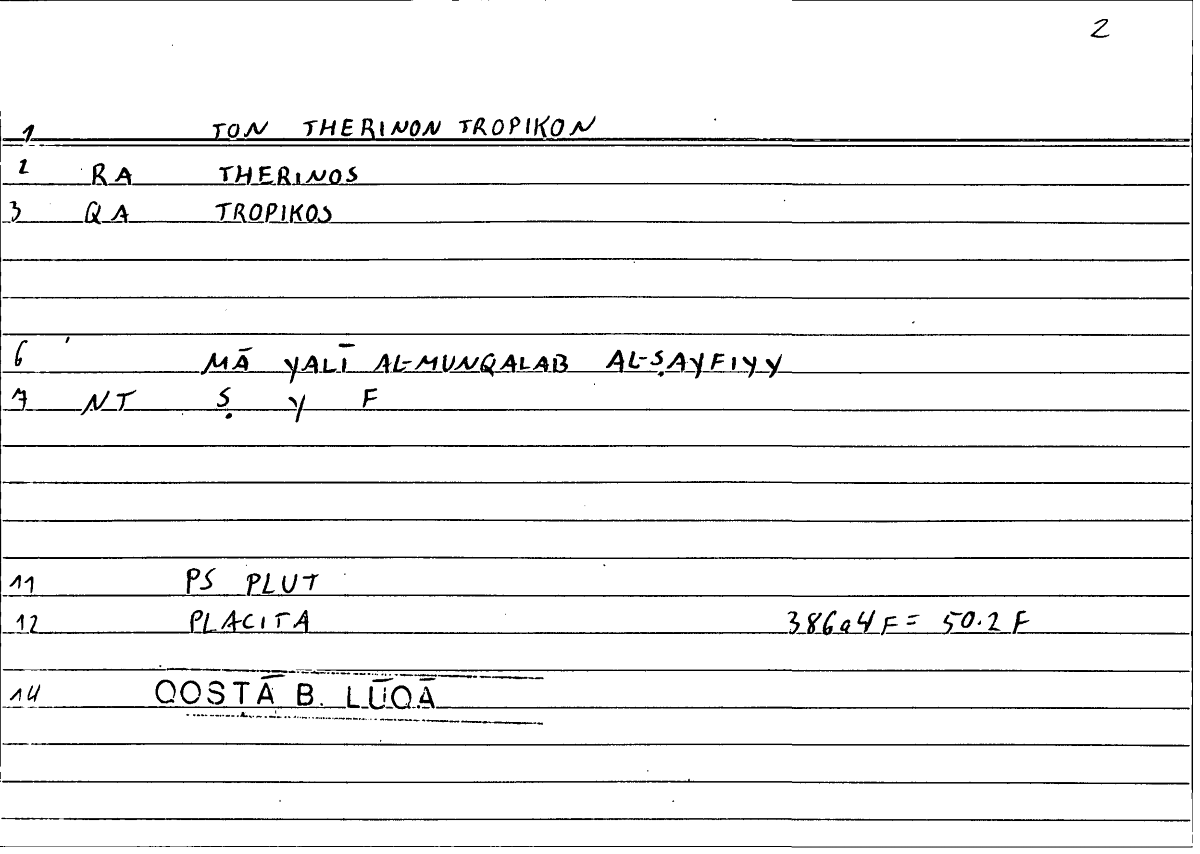 2
1 TON THERINON TROPIKON
2 RA THERINOS
3 QA TROPIKOS
6 MĀ YALĪ AL-MUNQALAB AL-ṢAYFIYY
7 NT Ṣ Y F
11 PS PLUT
12 PLACITA 386a4F = 50.2 F
14 QOSṬĀ B. LŪQĀ